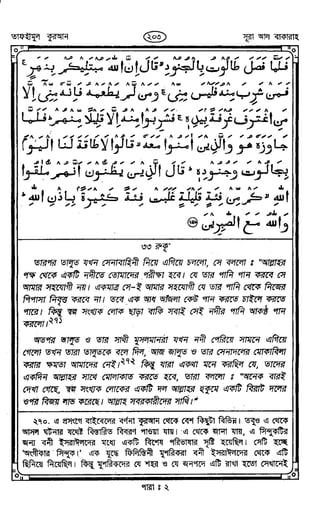 তাফহীমুল কুরআন
২০৩
সূরা আল বাকারাহ
فَلَمَّا فَصَلَ طَالُوتُ بِالْجُنُودِ ۙ قَالَ إِنَّ اللَّهَ مُبْتَلِيكُمْ بِنَهَرٍ ۚ
فَمَنْ شَرِبَ مِنْهُ فَلَيْسَ مِنِّي ۚ وَمَنْ لَمْ يَطْعَمْهُ فَإِنَّهُ مِنِّي إِلَّا
مَنِ اغْتَرَفَ غُرْفَةً بِيَدِهِ ۚ فَشَرِبُوا مِنْهُ إِلَّا قَلِيلًا مِنْهُمْ ۗ فَلَمَّا
جَاوَزَهُ هُوَ وَالَّذِينَ آمَنُوا مَعَهُ ۙ قَالُوا لَا طَاقَةَ لَنَا الْيَوْمَ
بِجَالُوتَ وَجُنُودِهِ ۚ قَالَ الَّذِينَ يَظُنُّونَ أَنَّهُمْ مُلَاقُوا
اللَّهِ ۙ كَمْ مِنْ فِئَةٍ قَلِيلَةٍ غَلَبَتْ فِئَةً كَثِيرَةً بِإِذْنِ اللَّهِ ۗ
وَاللَّهُ مَعَ الصَّابِرِينَ
৩৩ রুকূ'
তারপর তালুত যখন সেনাবাহিনী নিয়ে এগিয়ে চললো, সে বললো : "আল্লাহর
পক্ষ থেকে একটি নদীতে তোমাদের পরীক্ষা হবে। যে তার পানি পান করবে সে
আমার সহযোগী নয়। একমাত্র সে-ই আমার সহযোগী যে তার পানি থেকে নিজের
পিপাসা নিবৃত্ত করবে না। তবে এক আধ আজলা কেউ পান করতে চাইলে করতে
পারে। কিন্তু স্বল্প সংখ্যক লোক ছাড়া বাকি সবাই সেই নদীর পানি আকণ্ঠ পান
করলো।২৭১
অতপর তালুত ও তার সাথী মুসলমানরা যখন নদী পেরিয়ে সামনে এগিয়ে
গেলো তখন তারা তালুতকে বলে দিল, আজ জালুত ও তার সেনাদলের মোকাবিলা
করার ক্ষমতা আমাদের নেই।২৭২ কিন্তু যারা একথা মনে করছিল যে, তাদের
একদিন আল্লাহর সাথে মোলাকাত করতে হবে, তারা বললো : "অনেক বারই
দেখা গেছে, স্বল্প সংখ্যক লোকের একটি দল আল্লাহর হুকুমে একটি বিরাট দলের
ওপর বিজয় লাভ করেছে। আল্লাহ সবরকারীদের সাথি।"
২৭০. এ প্রসংগে বাইবেলের বর্ণনা কুরআন থেকে বেশ কিছুটা বিভিন্ন। তবুও এ থেকে
আসল ঘটনার যথেষ্ট বিস্তারিত বিবরণ পাওয়া যায়। এ থেকে জানা যায়, এ সিন্দুকটির
জন্য বনী ইসরাঈলদের মধ্যে একটি বিশেষ পরিভাষার সৃষ্টি হয়েছিল। সেটি হচ্ছে
'অংগীকার সিন্দুক।' এক যুদ্ধে ফিলিস্তিনী মুশরিকরা বনী ইসরাঈলদের থেকে এটি
ছিনিয়ে নিয়েছিল। কিন্তু মুশরিকদের যে শহর ও যে জনপদে এটি রাখা হতো সেখানেই
পারা : ২